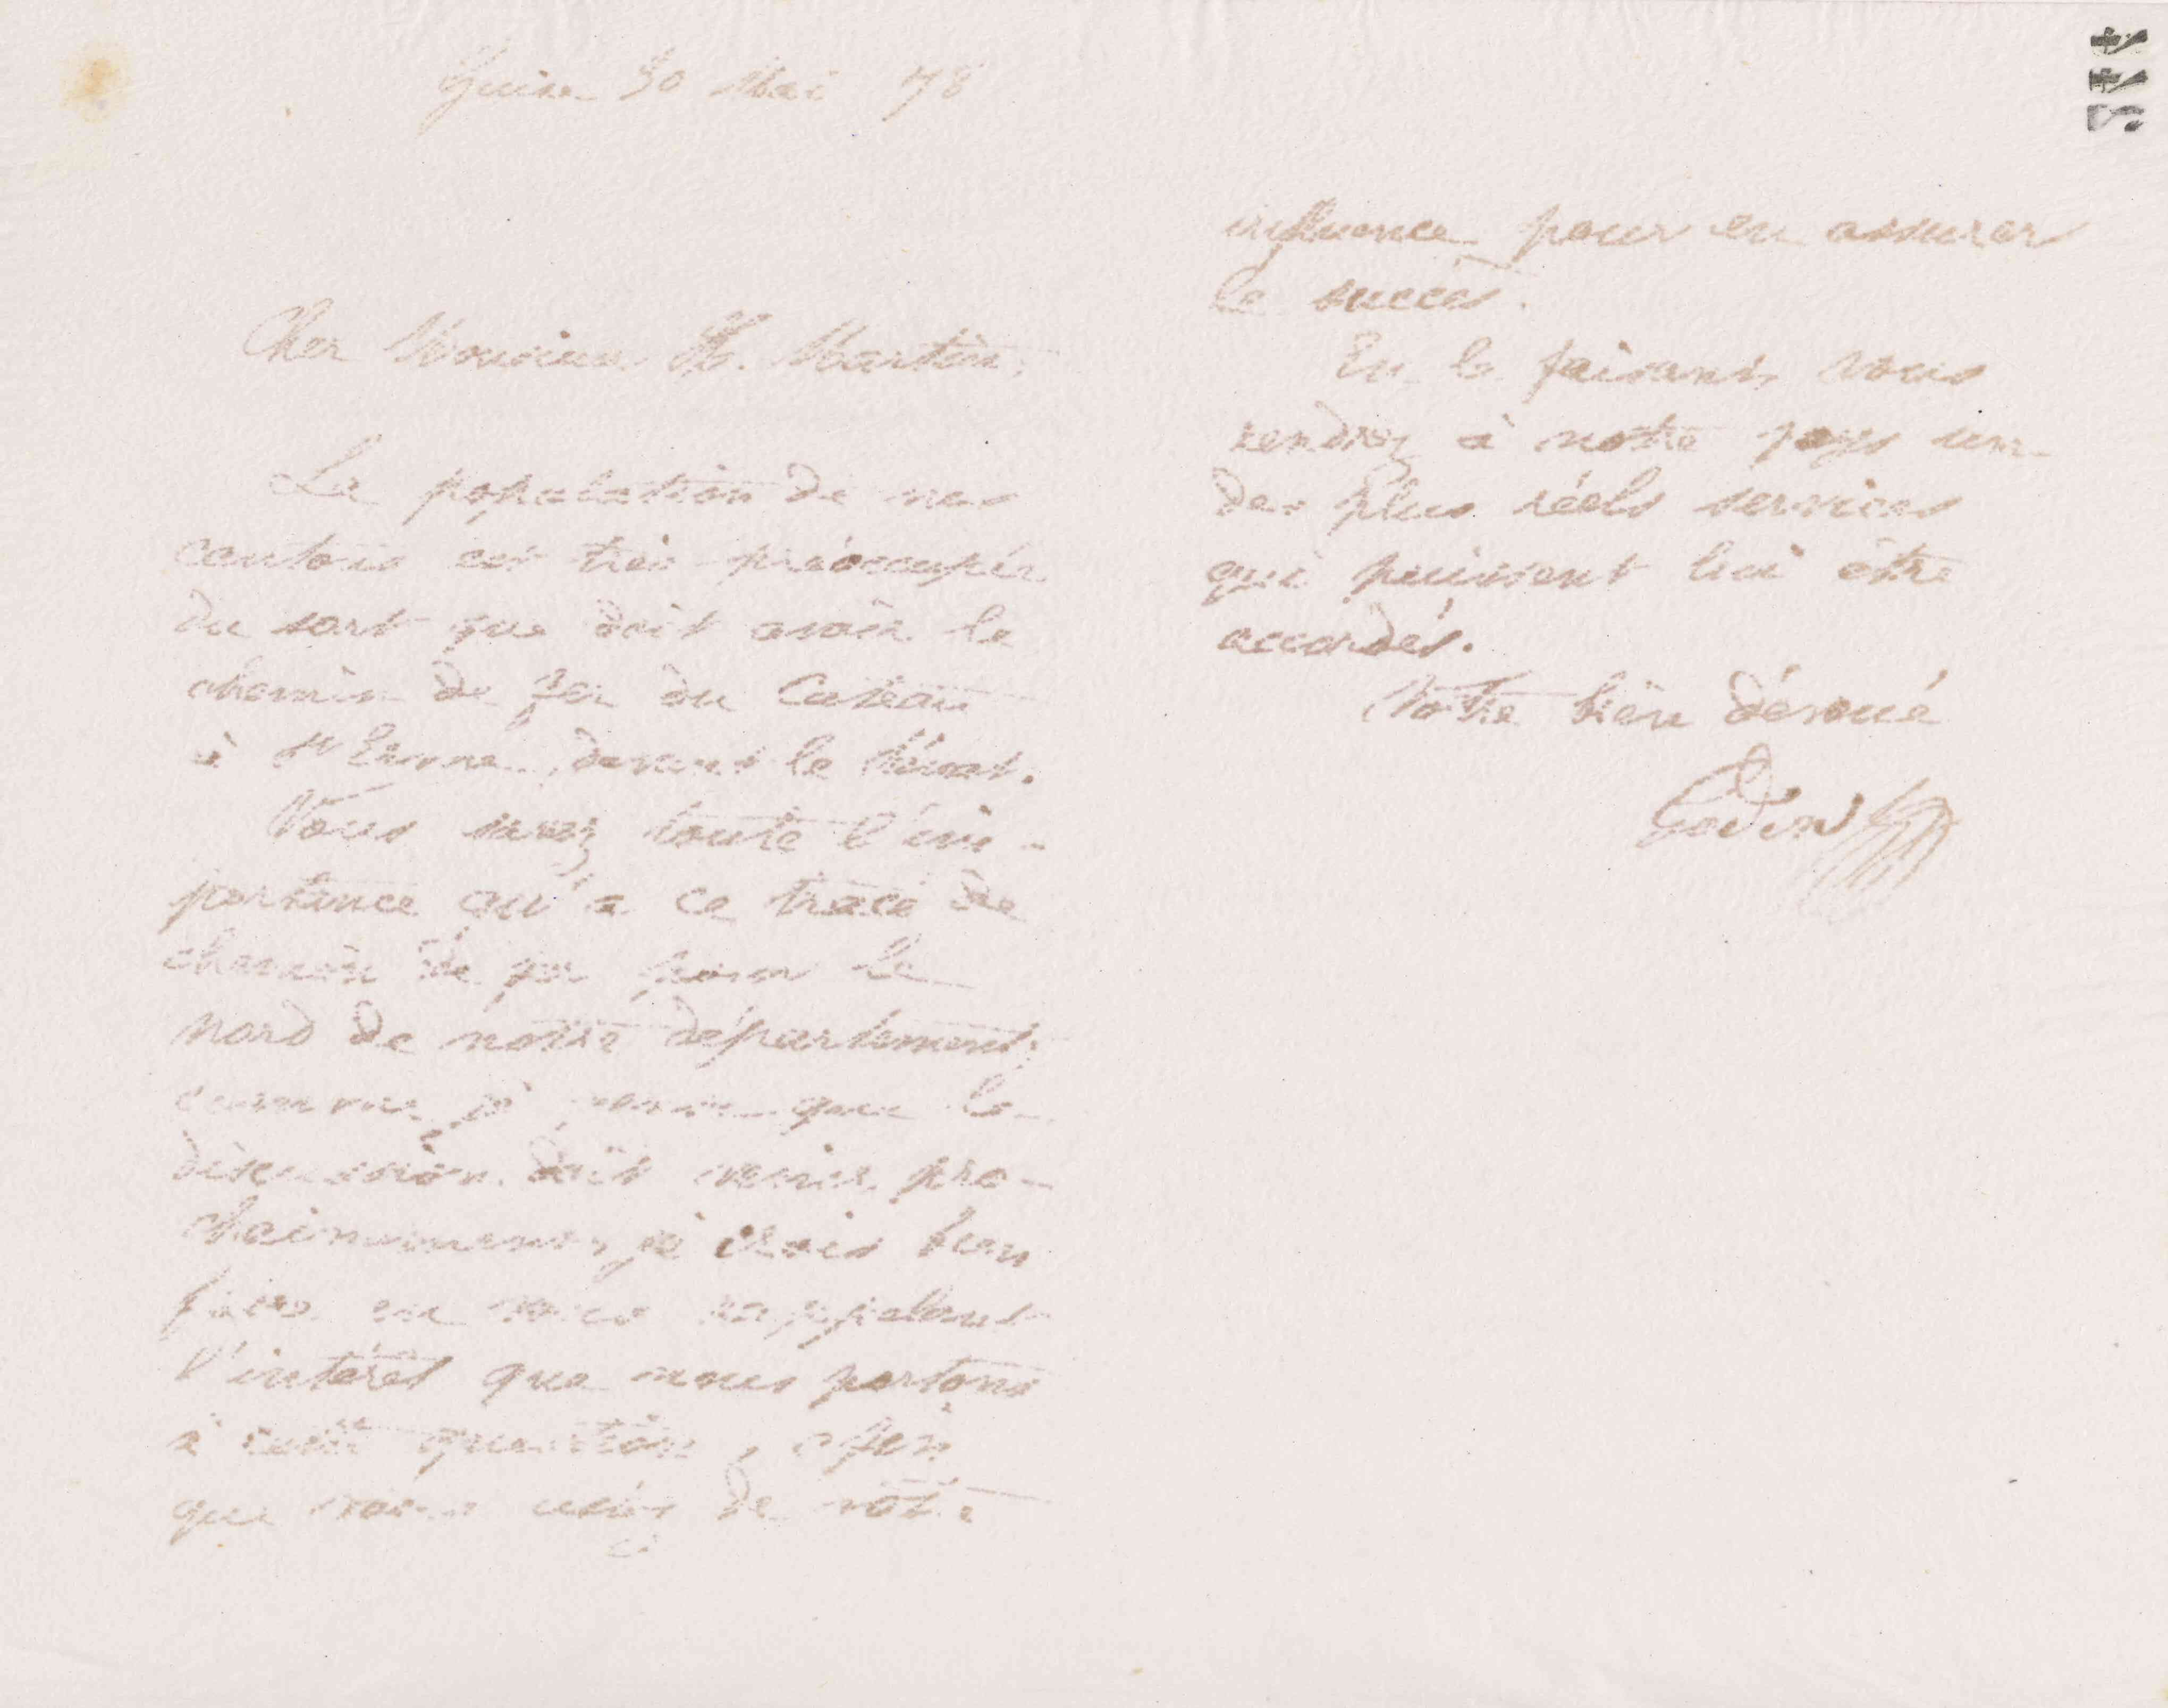 Guise 30 Mai 78
Cher Monsieur H. Martin,
La population de nos
cantons est très préoccupée
du sort que doit avoir le
chemin de fer du Cateau
à St Erme devant le Sénat.
Vous savez toute l'im-
portance qu'a ce tracé de
chemin de fer pour le
Nord de notre département;
comme je pense que la
discussion doit venir pro-
chainement, je crois bien
faire en vous rappelant
l'intérêt que nous portons
à cette question, afin
que vous usiez de votre
influence pour en assurer
le succès.
En le faisant, vous
rendrez à notre pays un
des plus réels services
qui puissent lui être
accordés.
Votre bien dévoué
Godin
445